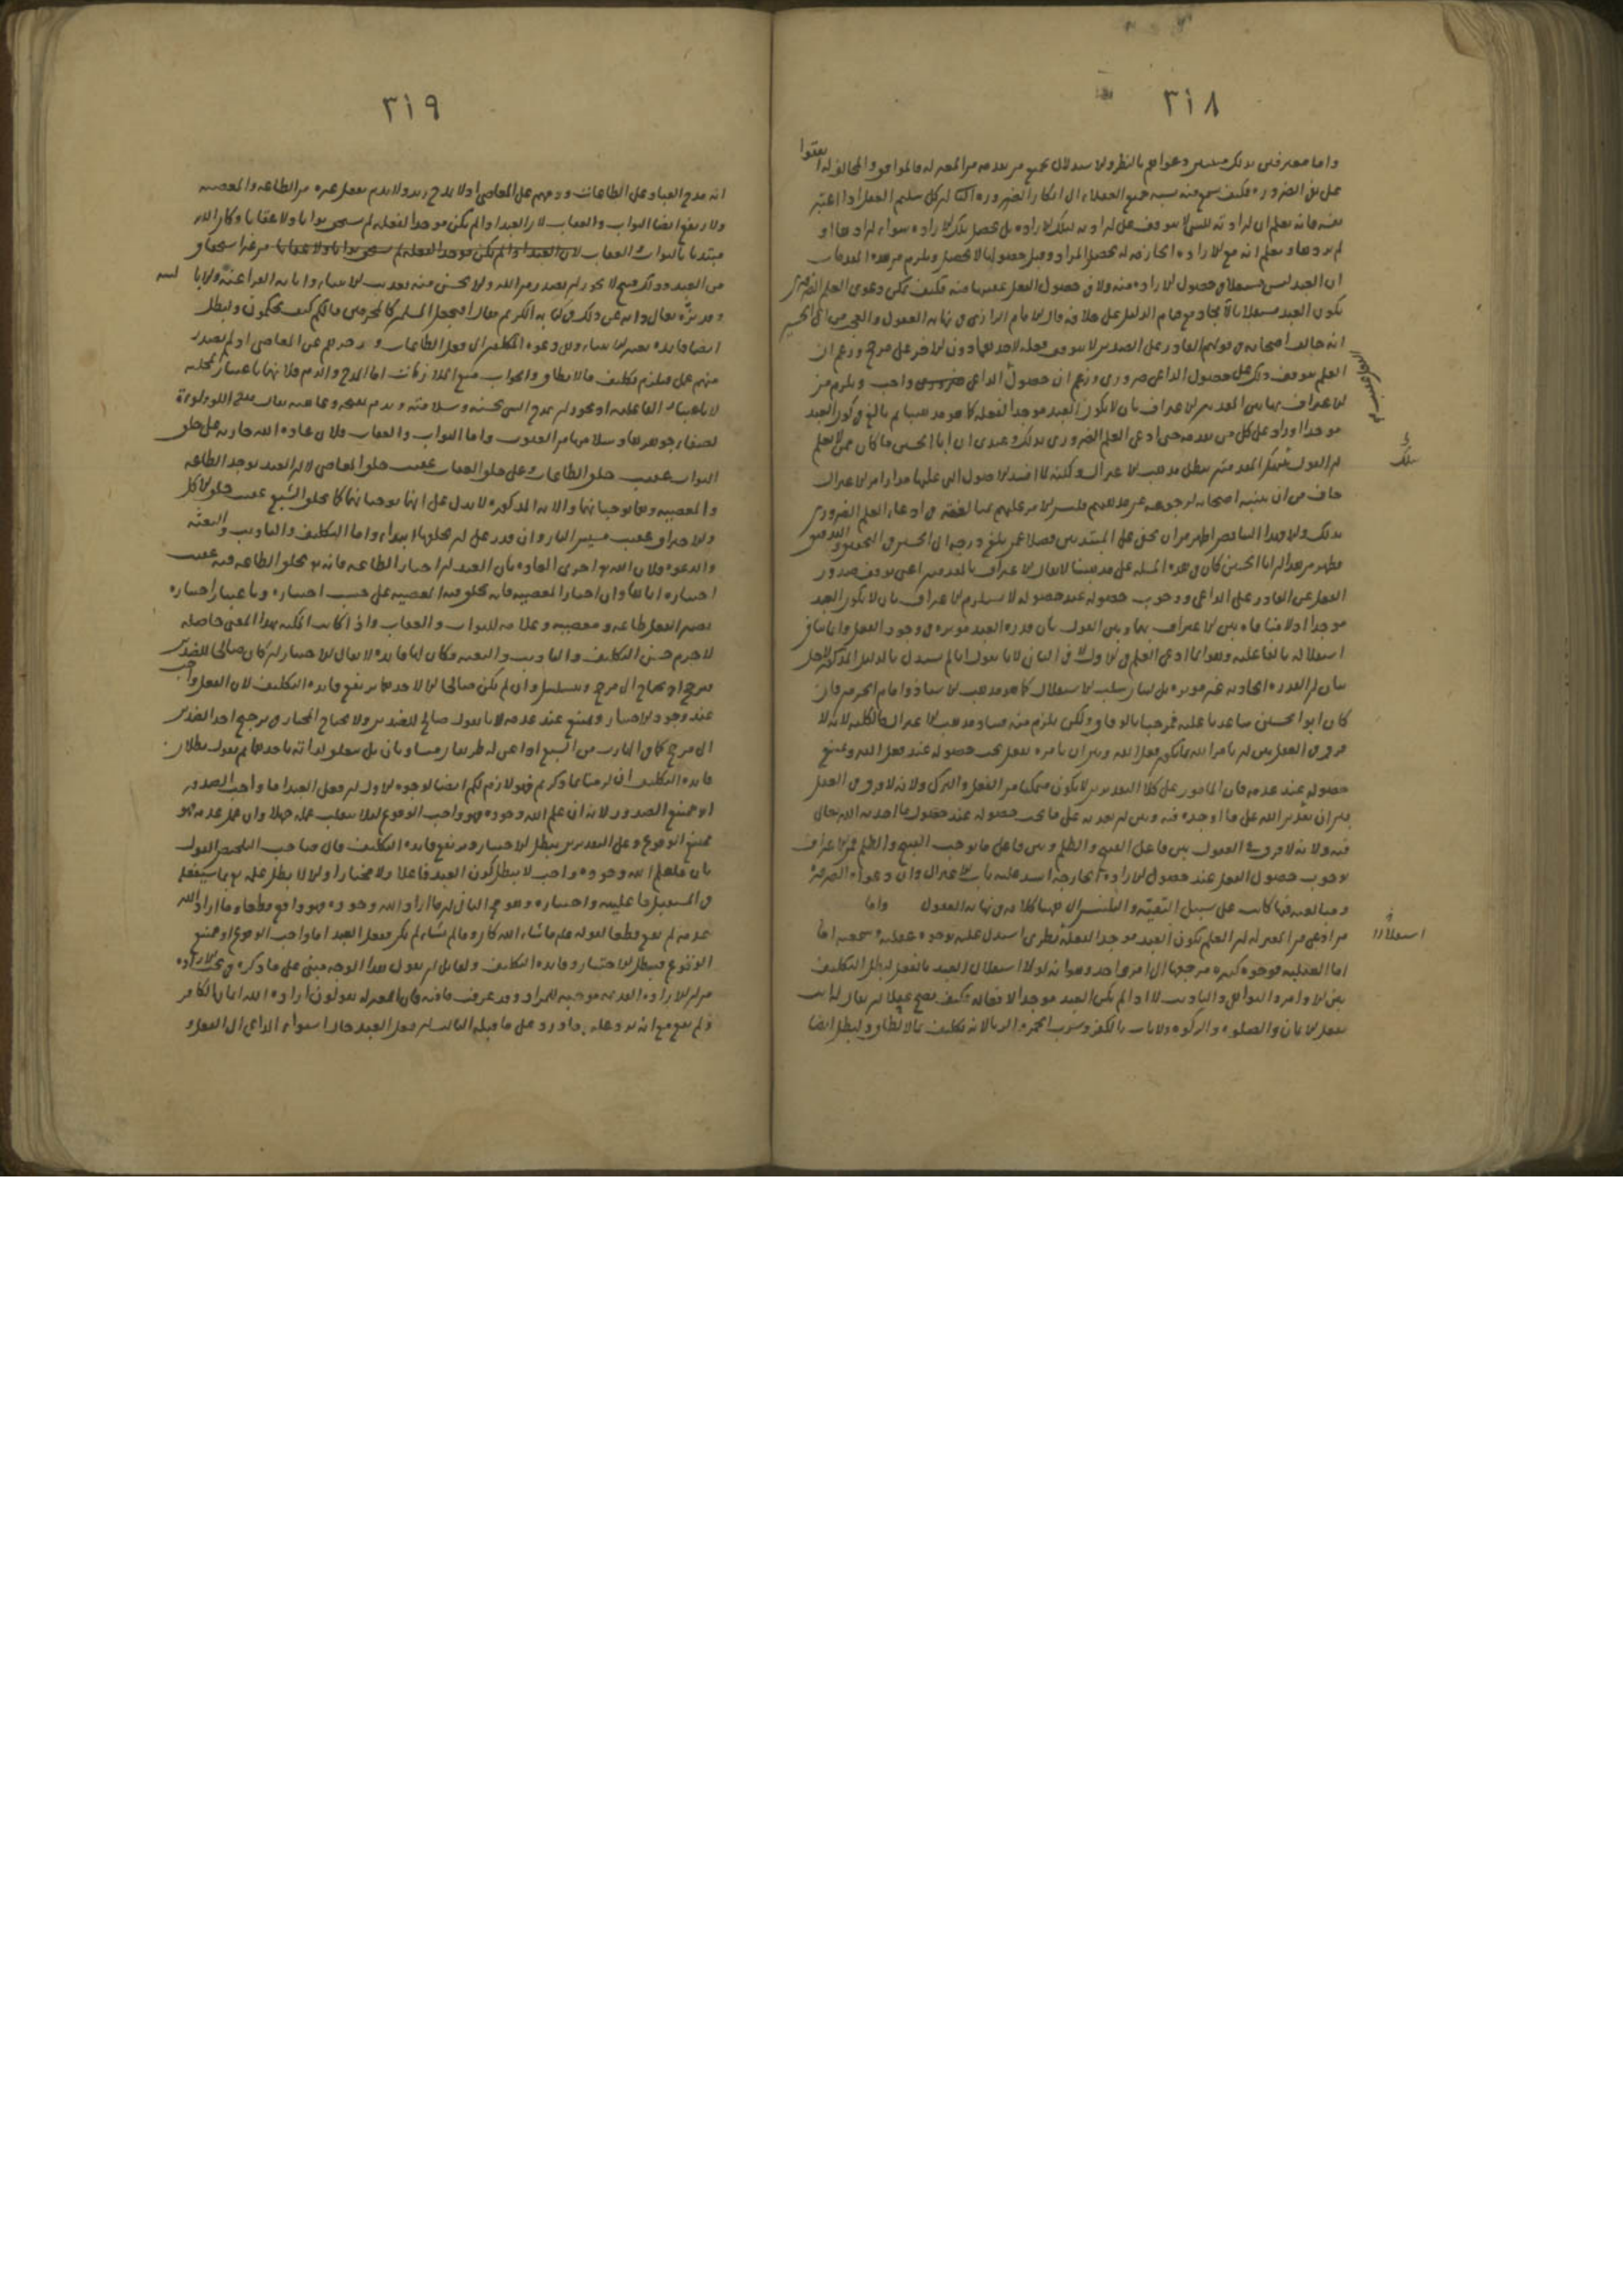 ٣١٨
واما معترفين بذلك مثبتين دعواهم بالنظر والاستدلال فجميع من بعده من المعتزلة فالموافق والمخالف له اتفقوا
على نفي الضرورة فكيف يسمع منه نسبة جميع العقلاء الى انكار الضرورة الثاني ان كل سليم العقل اذا اعتبر
نفسه فانه يعلم ان ارادته للشيء لا يتوقف على ارادته لتلك الارادة بل يحصل تلك الارادة سواء ارادها او
لم يردها ويعلم انه مع الارادة الجازمة له يحصل المراد وقبل حصولها لا يحصل ويلزم من هذه المقدمات
ان العبد ليس مستقلا في حصول الارادة منه ولا في حصول الفعل عقيبها منه فكيف يمكن دعوى العلم الضروري
بكون العبد مستقلا بالايجاد مع قيام الدليل على خلافه قال الامام الرازي في نهاية العقول والعجب من ابي الحسين
انه خالف اصحابه في قولهم القادر على الضدين لا يتوقف فعله لاحدهما دون الاخر على مرجح وزعم ان
العلم بتوقف ذلك على حصول الداعي ضروري وزعم ان حصول الداعي واجب ويلزم من
الاعتراف بهاتين المقدمتين الاعتراف بان لا يكون العبد موجدا لفعله كما هو مذهبنا ثم بالغ في كون العبد
موجدا وزاد على كل من تقدمه حتى ادعى العلم الضروري بذلك وعندي ان ابا الحسين ما كان ممن لا يعلم
ان القول بتينك المقدمتين يبطل مذهب الاعتزال ولكنه لما افسد الاصول التي عليها مدار امر الاعتزال
خاف من ان يتنبه اصحابه لرجوعه عن مذهبهم فلبس الامر عليهم بمبالغته في ادعاء العلم الضروري
بذلك والا فهذا التناقض اظهر من ان يخفى على المبتدئين فضلا عمن بلغ درجة ابي الحسين في التحقيق والتدقيق
فظهر من هذا ان ابا الحسين كان في هذه المسئلة على مذهبنا لا يقال الاعتراف بالمقدمتين اعني توقف صدور
الفعل عن القادر على الداعي ووجوب حصوله عند حصوله لا يستلزم الاعتراف بان لا يكون العبد
موجدا اذ لا منافاة بين الاعتراف بهما وبين القول بان قدرة العبد مؤثرة في وجود الفعل وانما ينافي
استقلاله بالفاعلية وهو انما ادعى العلم في الاول لا في الثاني لانا نقول انا لم نستدل بالدليل المذكور لاجل
بيان ان القدرة الحادثة غير مؤثرة بل لبيان سلب الاستقلال كما هو مذهب الاستاذ وامام الحرمين فان
كان ابو الحسين ساعدنا عليه فمرحبا بالوفاق ولكن يلزم منه فساد مذهب الاعتزال بالكلية لانه لا
فرق في العقل بين ان يامر الله بما يكون فعلا لله وبين ان يامره بفعل يجب حصوله عند فعل الله ويمتنع
حصوله عند عدمه فان المامور على كلا التقديرين لا يكون متمكنا من الفعل والترك ولانه لا فرق في العقل
بين ان يعذب الله على ما اوجده فيه وبين ان يعذبه على ما يجب حصوله عند حصول ما احدثه الله تعالى
فيه ولانه لا فرق في العقول بين فاعل القبيح والظلم وبين فاعل ما يوجب القبيح والظلم فمن اعترف
بوجوب حصول الفعل عند حصول الارادة الجازمة انسد عليه باب الاعتزال وان دعواه الضرورة
ومبالغته فيها كانت على سبيل التقية والتلبيس الى ههنا كلامه في نهاية العقول واما
من ادعى من المعتزلة ان العلم بكون العبد موجدا لفعله نظري استدل عليه بوجوه عقلية وسمعية اما
اما العقلية فوجوه كثيرة مرجعها الى امر واحد وهو انه لولا استقلال العبد بالفعل لبطل التكليف
بين الاوامر والنواهي والتاديب لانه اذا لم يكن العبد موجدا لافعاله فكيف يصح عقلا ان يقال له ايت
بفعل الايمان والصلوة والزكوة ولا تات بالكفر وشرب الخمر والربا لانه تكليف بما لا يطاق ولبطل ايضا
استقلالا
٣١٩
انه مدح العباد على الطاعات وذمهم على المعاصي اذ لا يمدح زيد ولا يذم بفعل غيره من الطاعة والمعصية
ولا يرتفع ايضا الثواب والعقاب لان العبد اذا لم يكن موجدا لفعله لم يستحق ثوابا ولا عقابا وكان الله
مبتديا بالثواب والعقاب من غير استحقاق
من العبد وذلك قبيح لا يجوز ان يصدر من الله ولا يحسن منه تعذيب الانبياء واثابة الفراعنة
وقد نزه تعالى ذاته عن ذلك في كتابه الكريم فقال افنجعل المسلمين كالمجرمين ما لكم كيف تحكمون ولبطل
ايضا فايدة بعثة الانبياء وهي دعوة المكلفين الى فعل الطاعات وزجرهم عن المعاصي اذ لم يصدر
منهم عمل فيلزم تكليف ما لا يطاق والجواب منع الملازمات اما المدح والذم فلانهما باعتبار المحلية
لا باعتبار الفاعلية اذ يجوز ان يمدح الشيء بحسنه وسلامته ويذم بقبحه وعاهته يقال مدح اللؤلؤة
لصفاء جوهرها وسلامتها من العيوب واما الثواب والعقاب فلان عادة الله جارية على خلق
الثواب عقيب خلق الطاعات وعلى خلق العقاب عقيب خلق المعاصي لا ان العبد يوجد الطاعة
والمعصية وهما يوجبانهما والاية المذكورة لا تدل على انهما يوجبانهما كما يخلق الشبع عقيب خلق الاكل
والاحتراق عقيب مسيس النار وان قدر على ان يخلقها ابتداء واما التكليف والتاديب والبعثة
والدعوة فلان الله تع اجرى العادة بان العبد ان اختار الطاعة فانه تع يخلق الطاعة فيه عقيب
اختياره اياها وان اختار المعصية فانه يخلق فيه المعصية على حسب اختياره وباعتبار اختياره
يصير الفعل طاعة ومعصية وعلامة للثواب والعقاب واذا كانت المكنة بهذا المعنى حاصلة
لا جرم حسن التكليف والتاديب والبعثة وكان لها فايدة لا يقال الاختيار ان كان صالحا للضدين
عند وجود الاختيار ويمتنع عند عدمه لانا نقول صالح للضدين ولا يحتاج المختار في ترجيح احد الضدين
الى مرجح كما في الهارب من السبع اذا عن له طريقان متساويان بل يتعلق لذاته باحدهما ثم نقول بطلان
فايدة التكليف ان لزمنا بما ذكرتم فهو لازم لكم ايضا لوجوه الاول ان فعل العبد اما واجب الصدور
او ممتنع الصدور لانه ان علم الله وجوده فهو واجب الوقوع لئلا ينقلب علمه جهلا وان علم عدمه فهو
ممتنع الوقوع وعلى التقديرين يبطل الاختيار ويرتفع فايدة التكليف قال صاحب التلخيص القول
بان ما علم الله وجوده واجب لا يبطل كون العبد فاعلا ولا مختارا والا لا يبطل علمه تع بما سيفعل
في المستقبل فاعليته واختياره وهو محال الثاني ان ما اراد الله وجوده فهو واقع قطعا وما اراد الله
عدمه لم يقع قطعا لقوله عليه ما شاء الله كان وما لم يشاء لم يكن ففعل العبد اما واجب الوقوع او ممتنع
الوقوع فيبطل الاختيار وفايدة التكليف ولقايل ان يقول هذا الوجه مبني على ما ذكره في بحث الارادة
من ان الارادة القديمة موجبة للمراد وقد عرفت ما فيه فان المعتزلة يقولون اراد الله ايمان الكافر
ولم يقع مع انه يرد عليه ما ورد على ما قبله الثالث ان فعل العبد حال استواء الداعي الى الفعل و